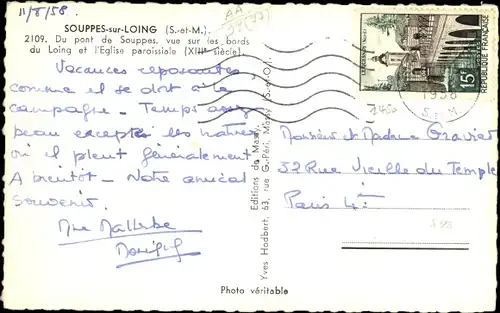 11/8/58.
SOUPPES-sur-LOING (S.-et-M.)
2109. Du pont de Souppes, vue sur les bords
du Loing et l'Eglise paroissiale (XIIIe siècle).
Vacances reposantes
comme il se doit à la
campagne - Temps assez
beau excepté les
où il pleut généralement
A bientôt - Notre amical
souvenir.
Mme Mallerbe
Editions de Massy
Yves Hadbert, 63, rue G.-Péri, Massy (S.-et-O.)
Photo véritable
15F
REPUBLIQUE FRANÇAISE
1958
S. M
Monsieur et Madame Gravier
32 Rue Vieille du Temple
Paris 4è